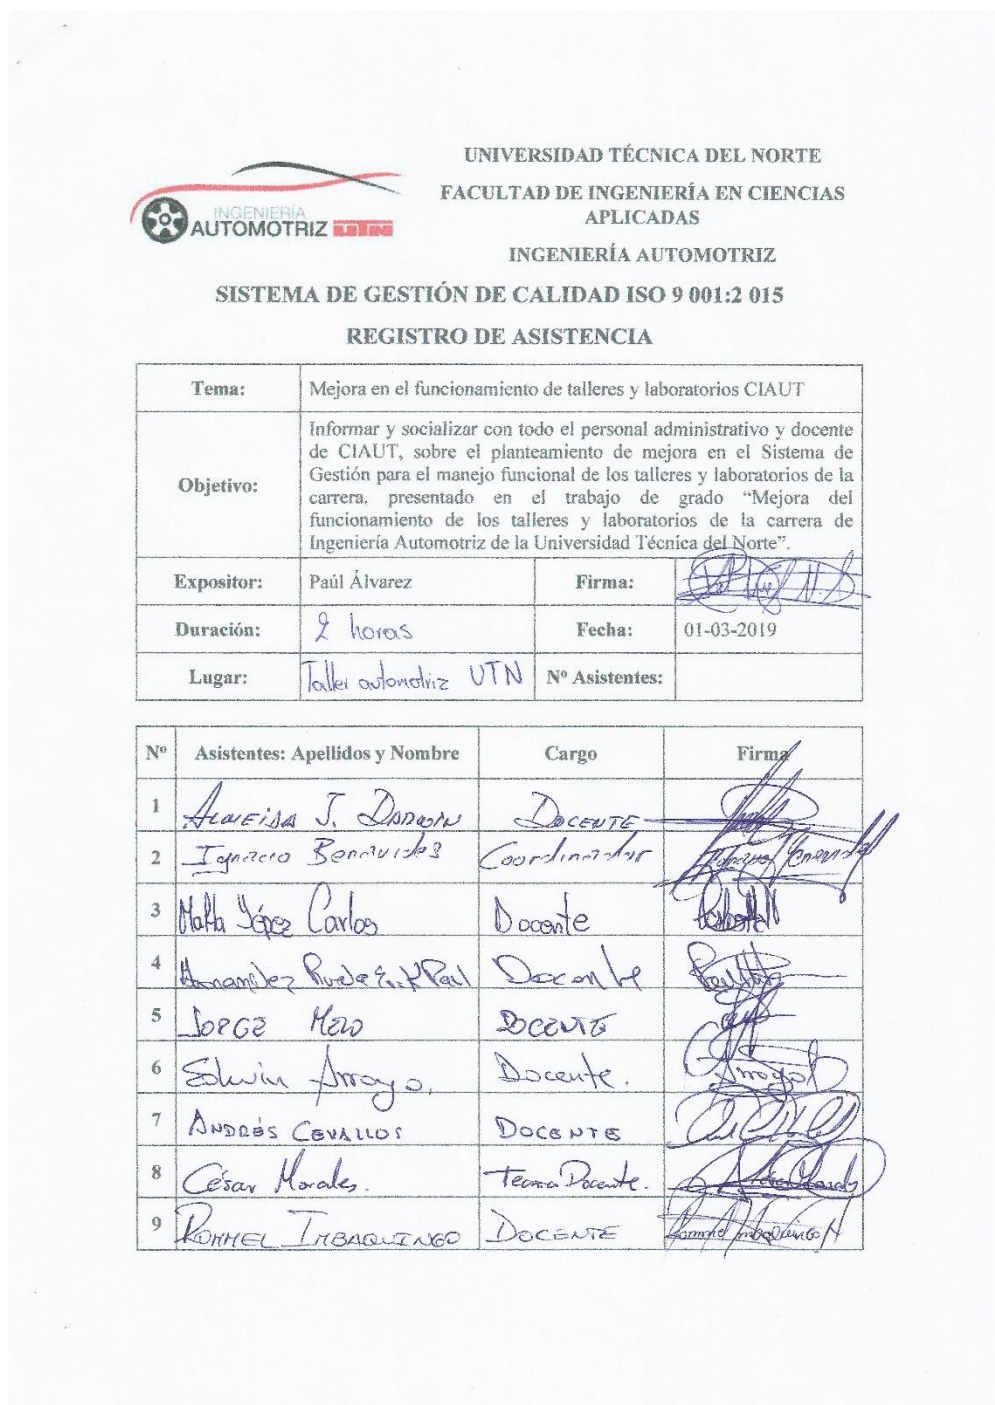 UNIVERSIDAD TÉCNICA DEL NORTE
FACULTAD DE INGENIERÍA EN CIENCIAS
APLICADAS
INGENIERÍA AUTOMOTRIZ
INGENIERÍA
AUTOMOTRIZ UTN
SISTEMA DE GESTIÓN DE CALIDAD ISO 9 001:2 015
REGISTRO DE ASISTENCIA
Tema: Mejora en el funcionamiento de talleres y laboratorios CIAUT
Objetivo: Informar y socializar con todo el personal administrativo y docente
de CIAUT, sobre el planteamiento de mejora en el Sistema de
Gestión para el manejo funcional de los talleres y laboratorios de la
carrera, presentado en el trabajo de grado “Mejora del
funcionamiento de los talleres y laboratorios de la carrera de
Ingeniería Automotriz de la Universidad Técnica del Norte”.
Expositor: Paúl Álvarez Firma:
Duración: 2 horas Fecha: 01-03-2019
Lugar: Taller automotriz UTN Nº Asistentes:
Nº Asistentes: Apellidos y Nombre Cargo Firma
1 ALMEIDA J. DARWIN DOCENTE
2 Ignacio Benavides Coordinador
3 Mafla Yépez Carlos Docente
4 Hernandez Rueda Paul Docente
5 JORGE MELO DOCENTE
6 Edwin Arroyo. Docente. Arroyo
7 ANDRÉS CEVALLOS DOCENTE
8 César Morales. Docente.
9 ROMMEL IMBAQUINGO DOCENTE